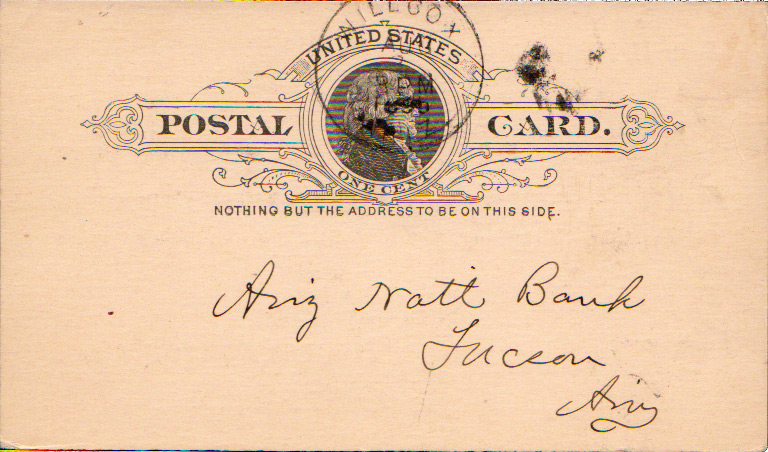 WILLCOX
UNITED STATES
POSTAL CARD.
ONE CENT
NOTHING BUT THE ADDRESS TO BE ON THIS SIDE.
Ariz Natl Bank
Tucson
Ariz